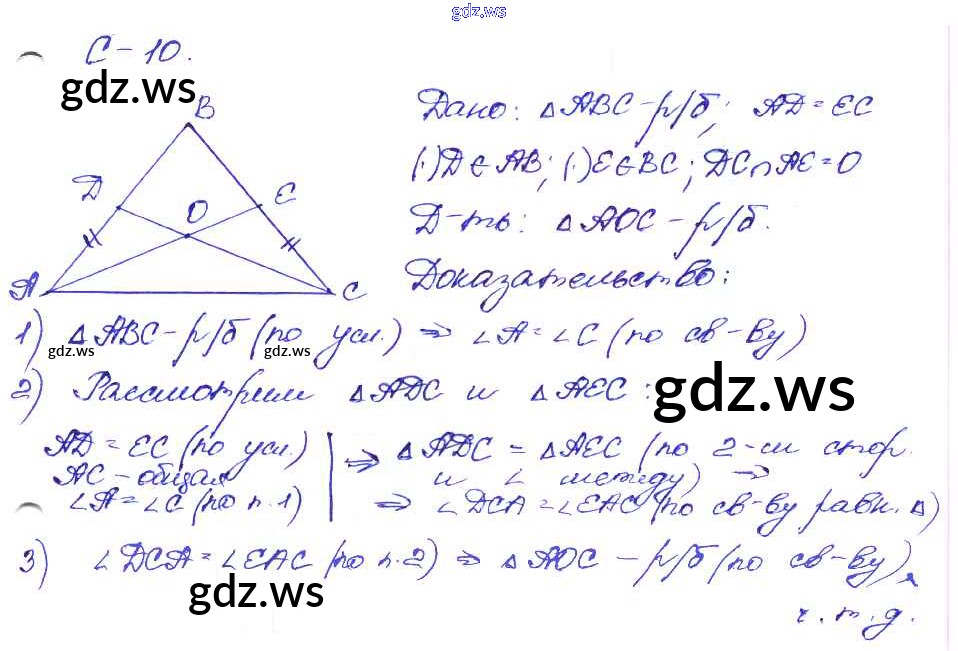 gdz.ws
С-10.
gdz.ws
B
Дано: △ABC - р/б; AD = EC
D
E
O
(·)D∈AB; (·)E∈BC; DC∩AE=O
Д-ть: △AOC - р/б.
A
C
Доказательство:
1) △ABC - р/б (по усл.) ⇒ ∠A = ∠C (по св-ву)
gdz.ws gdz.ws
2) Рассмотрим △ADC и △AEC:
gdz.ws
AD = EC (по усл.)
AC - общая
∠A = ∠C (по п.1)
⇒ △ADC = △AEC (по 2-м стор.
и ∠ между) ⇒
⇒ ∠DCA = ∠EAC (по св-ву равн. △)
3) ∠DCA = ∠EAC (по п.2) ⇒ △AOC - р/б (по св-ву),
gdz.ws
ч.т.д.